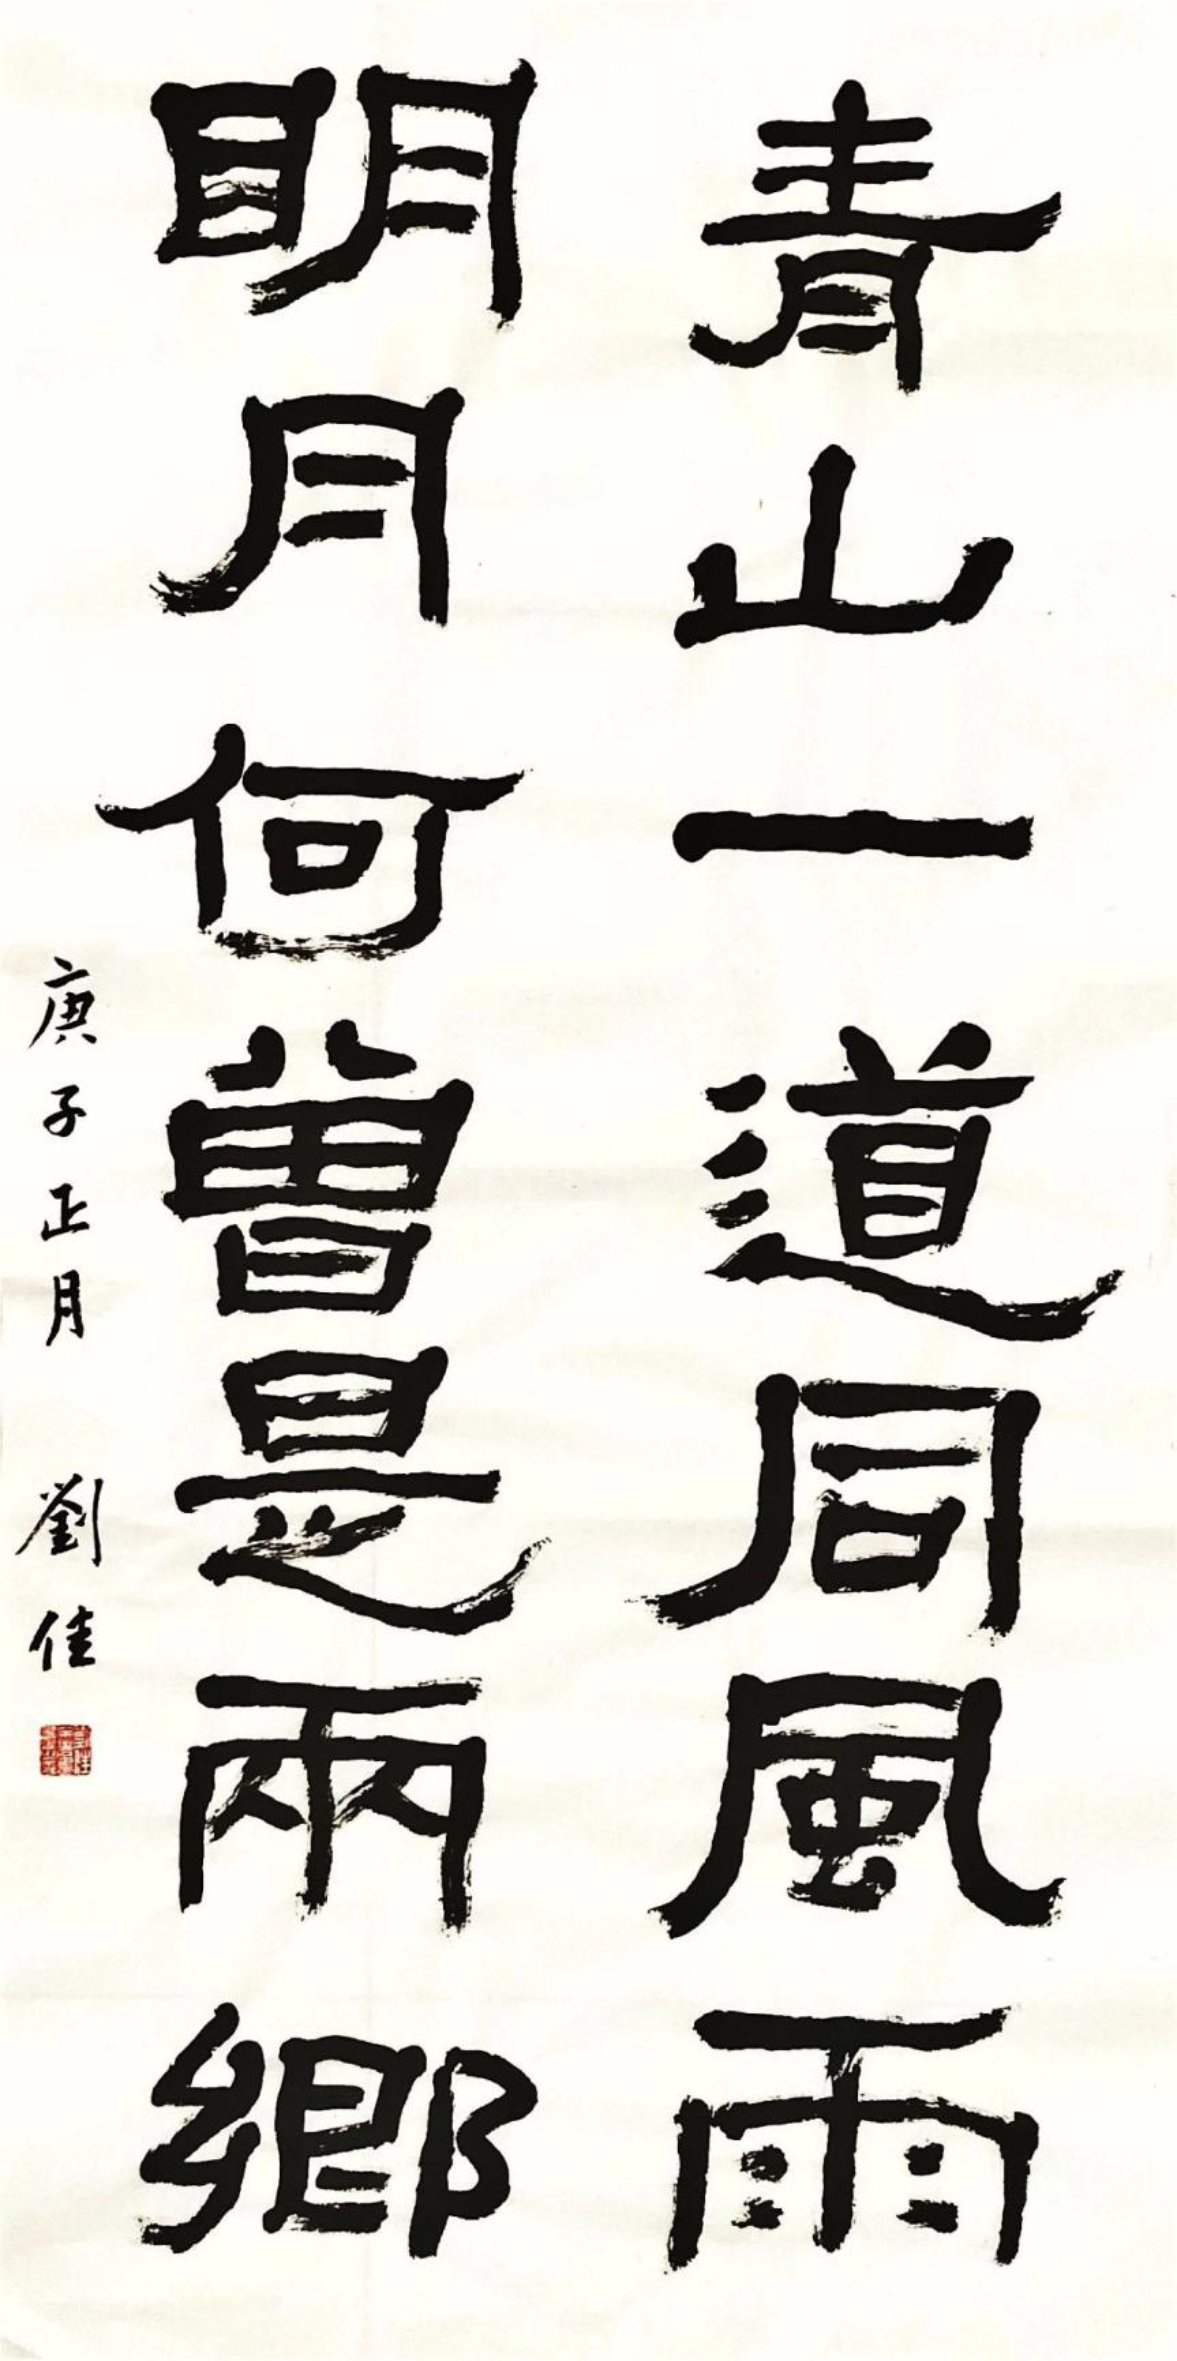 青山一道同風雨
明月何曾是兩鄉
庚子正月 劉佳